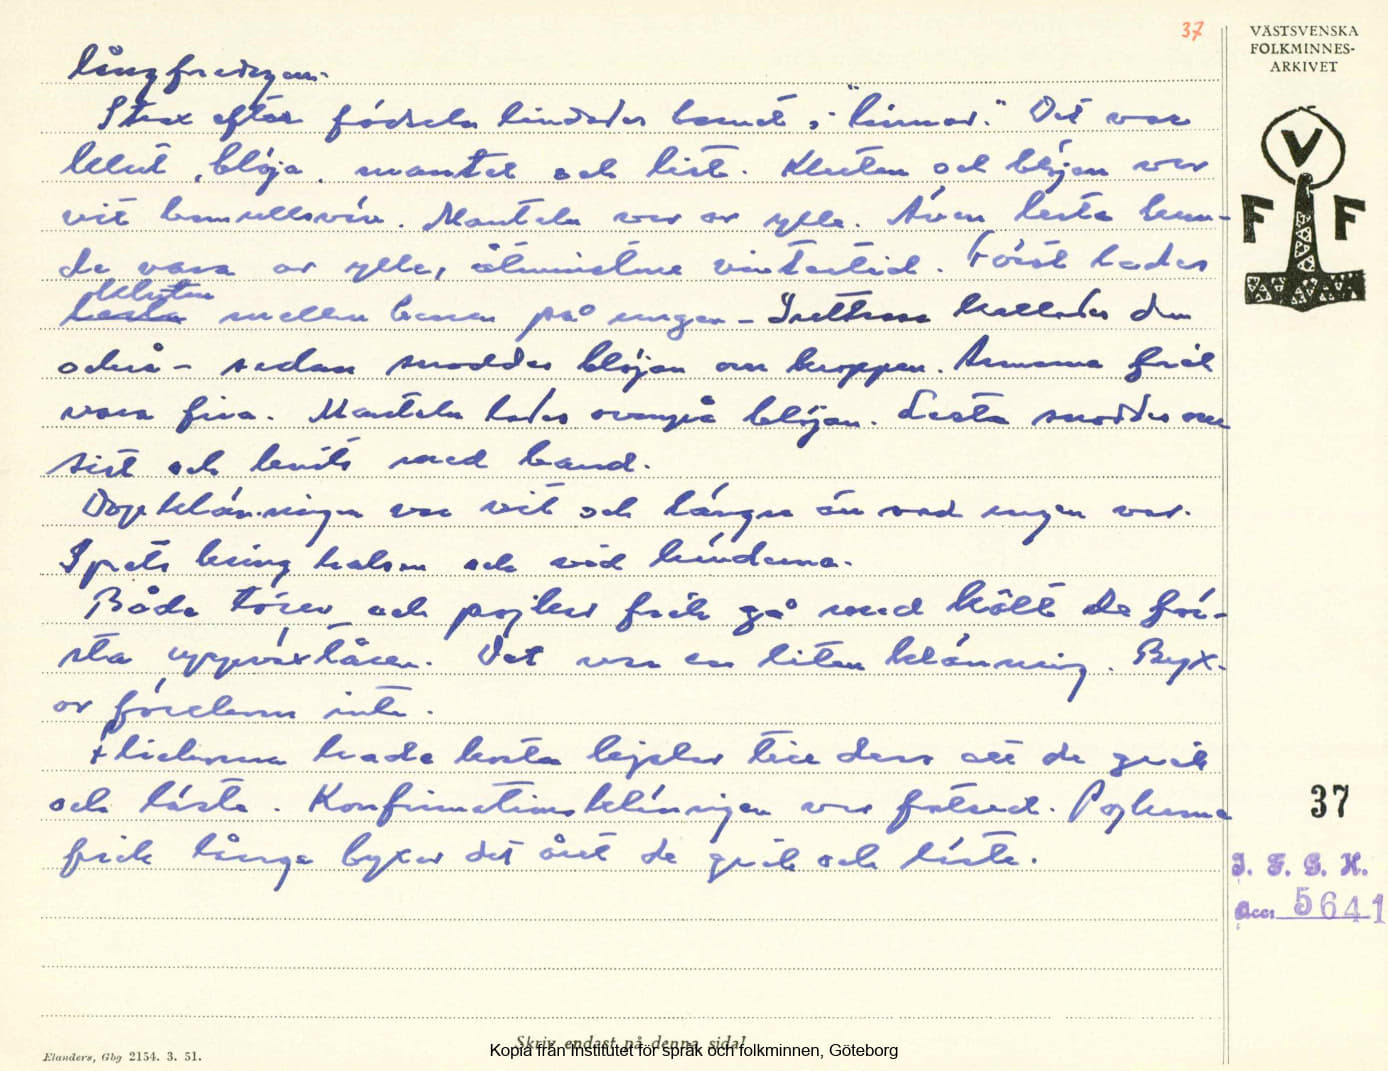 37
VÄSTSVENSKA
FOLKMINNES-
ARKIVET
långfredagen.
Strax efter födseln lindades barnet i "linnor." Det var
klut, blöja, mantel och list. Kluten och blöjan var
vit bomullsväv. Manteln var av ylle. Även lista kun-
de vara av ylle, åtminstone vintertid. Först lades
kluten
lista mellan benen på ungen - kallades den
också - sedan snoddes blöjan om kroppen. Armarna fick
vara fria. Manteln lades ovanpå blöjan. Lista snoddes om
sist och knöts med band.
Dopklänningen var vit och längre än vad ungen var.
Spets kring halsen och vid händerna.
Både töser och pojkar fick gå med kolt de för-
sta uppväxtåren. Det var en liten klänning. Byx-
or förekom inte.
Flickorna hade korta kjolar till dess att de gick
och läste. Konfirmationsklänningen var fotsid. Pojkarna
fick långa byxor det året de gick och läste.
V
F F
37
I. F. G. H.
Acc: 5641
Skriv endast på denna sida!
Elanders, Gbg 2154. 3. 51.
Kopia från Institutet för språk och folkminnen, Göteborg